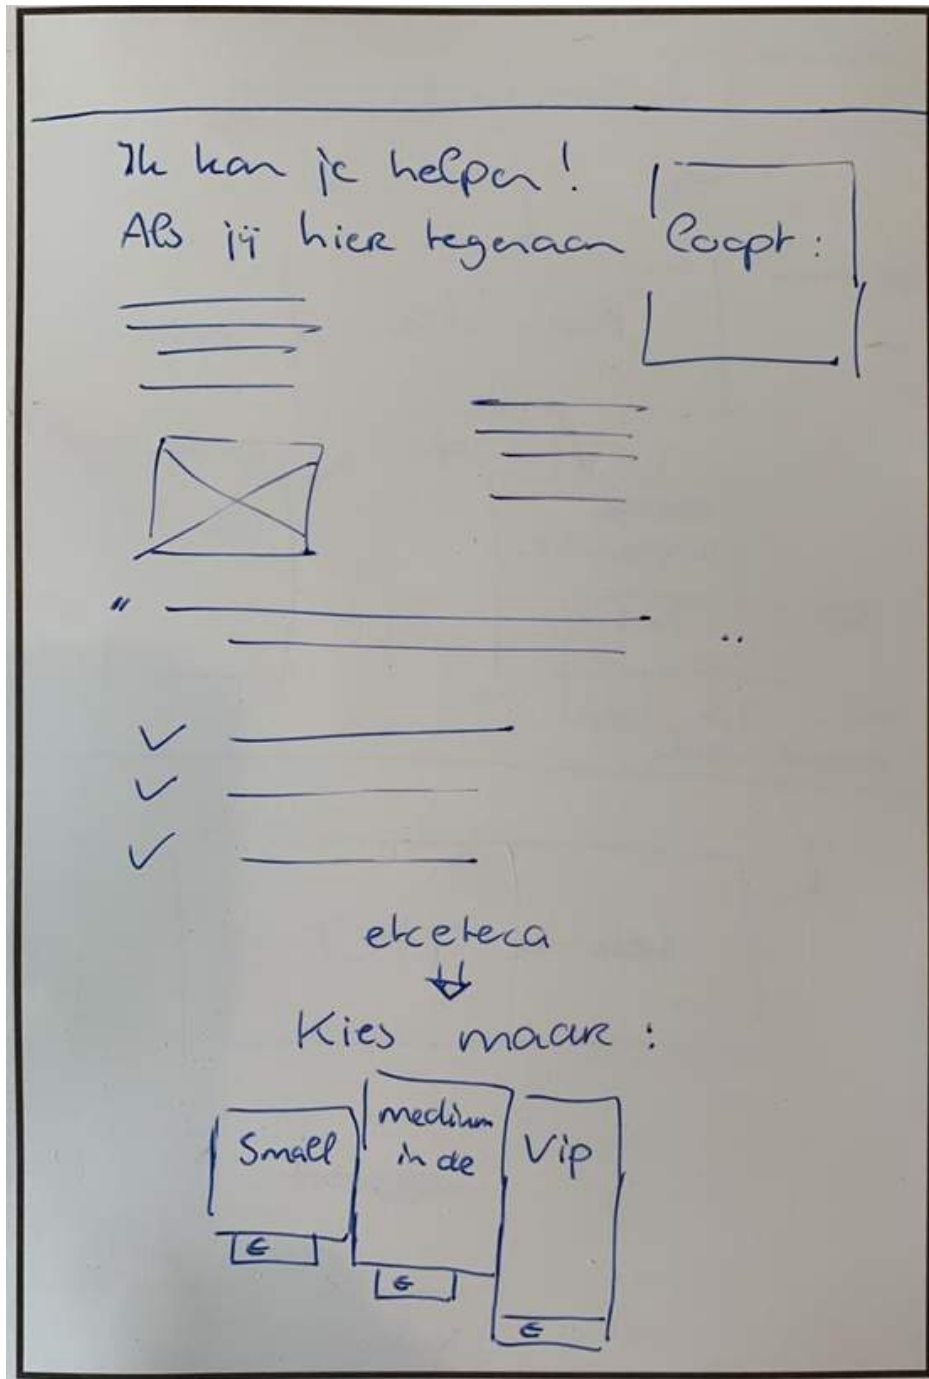 Ik kan je helpen!
Als jij hier tegenaan loopt:
"
"
etcetera
Kies maar:
Small
€
medium
in de
€
Vip
€